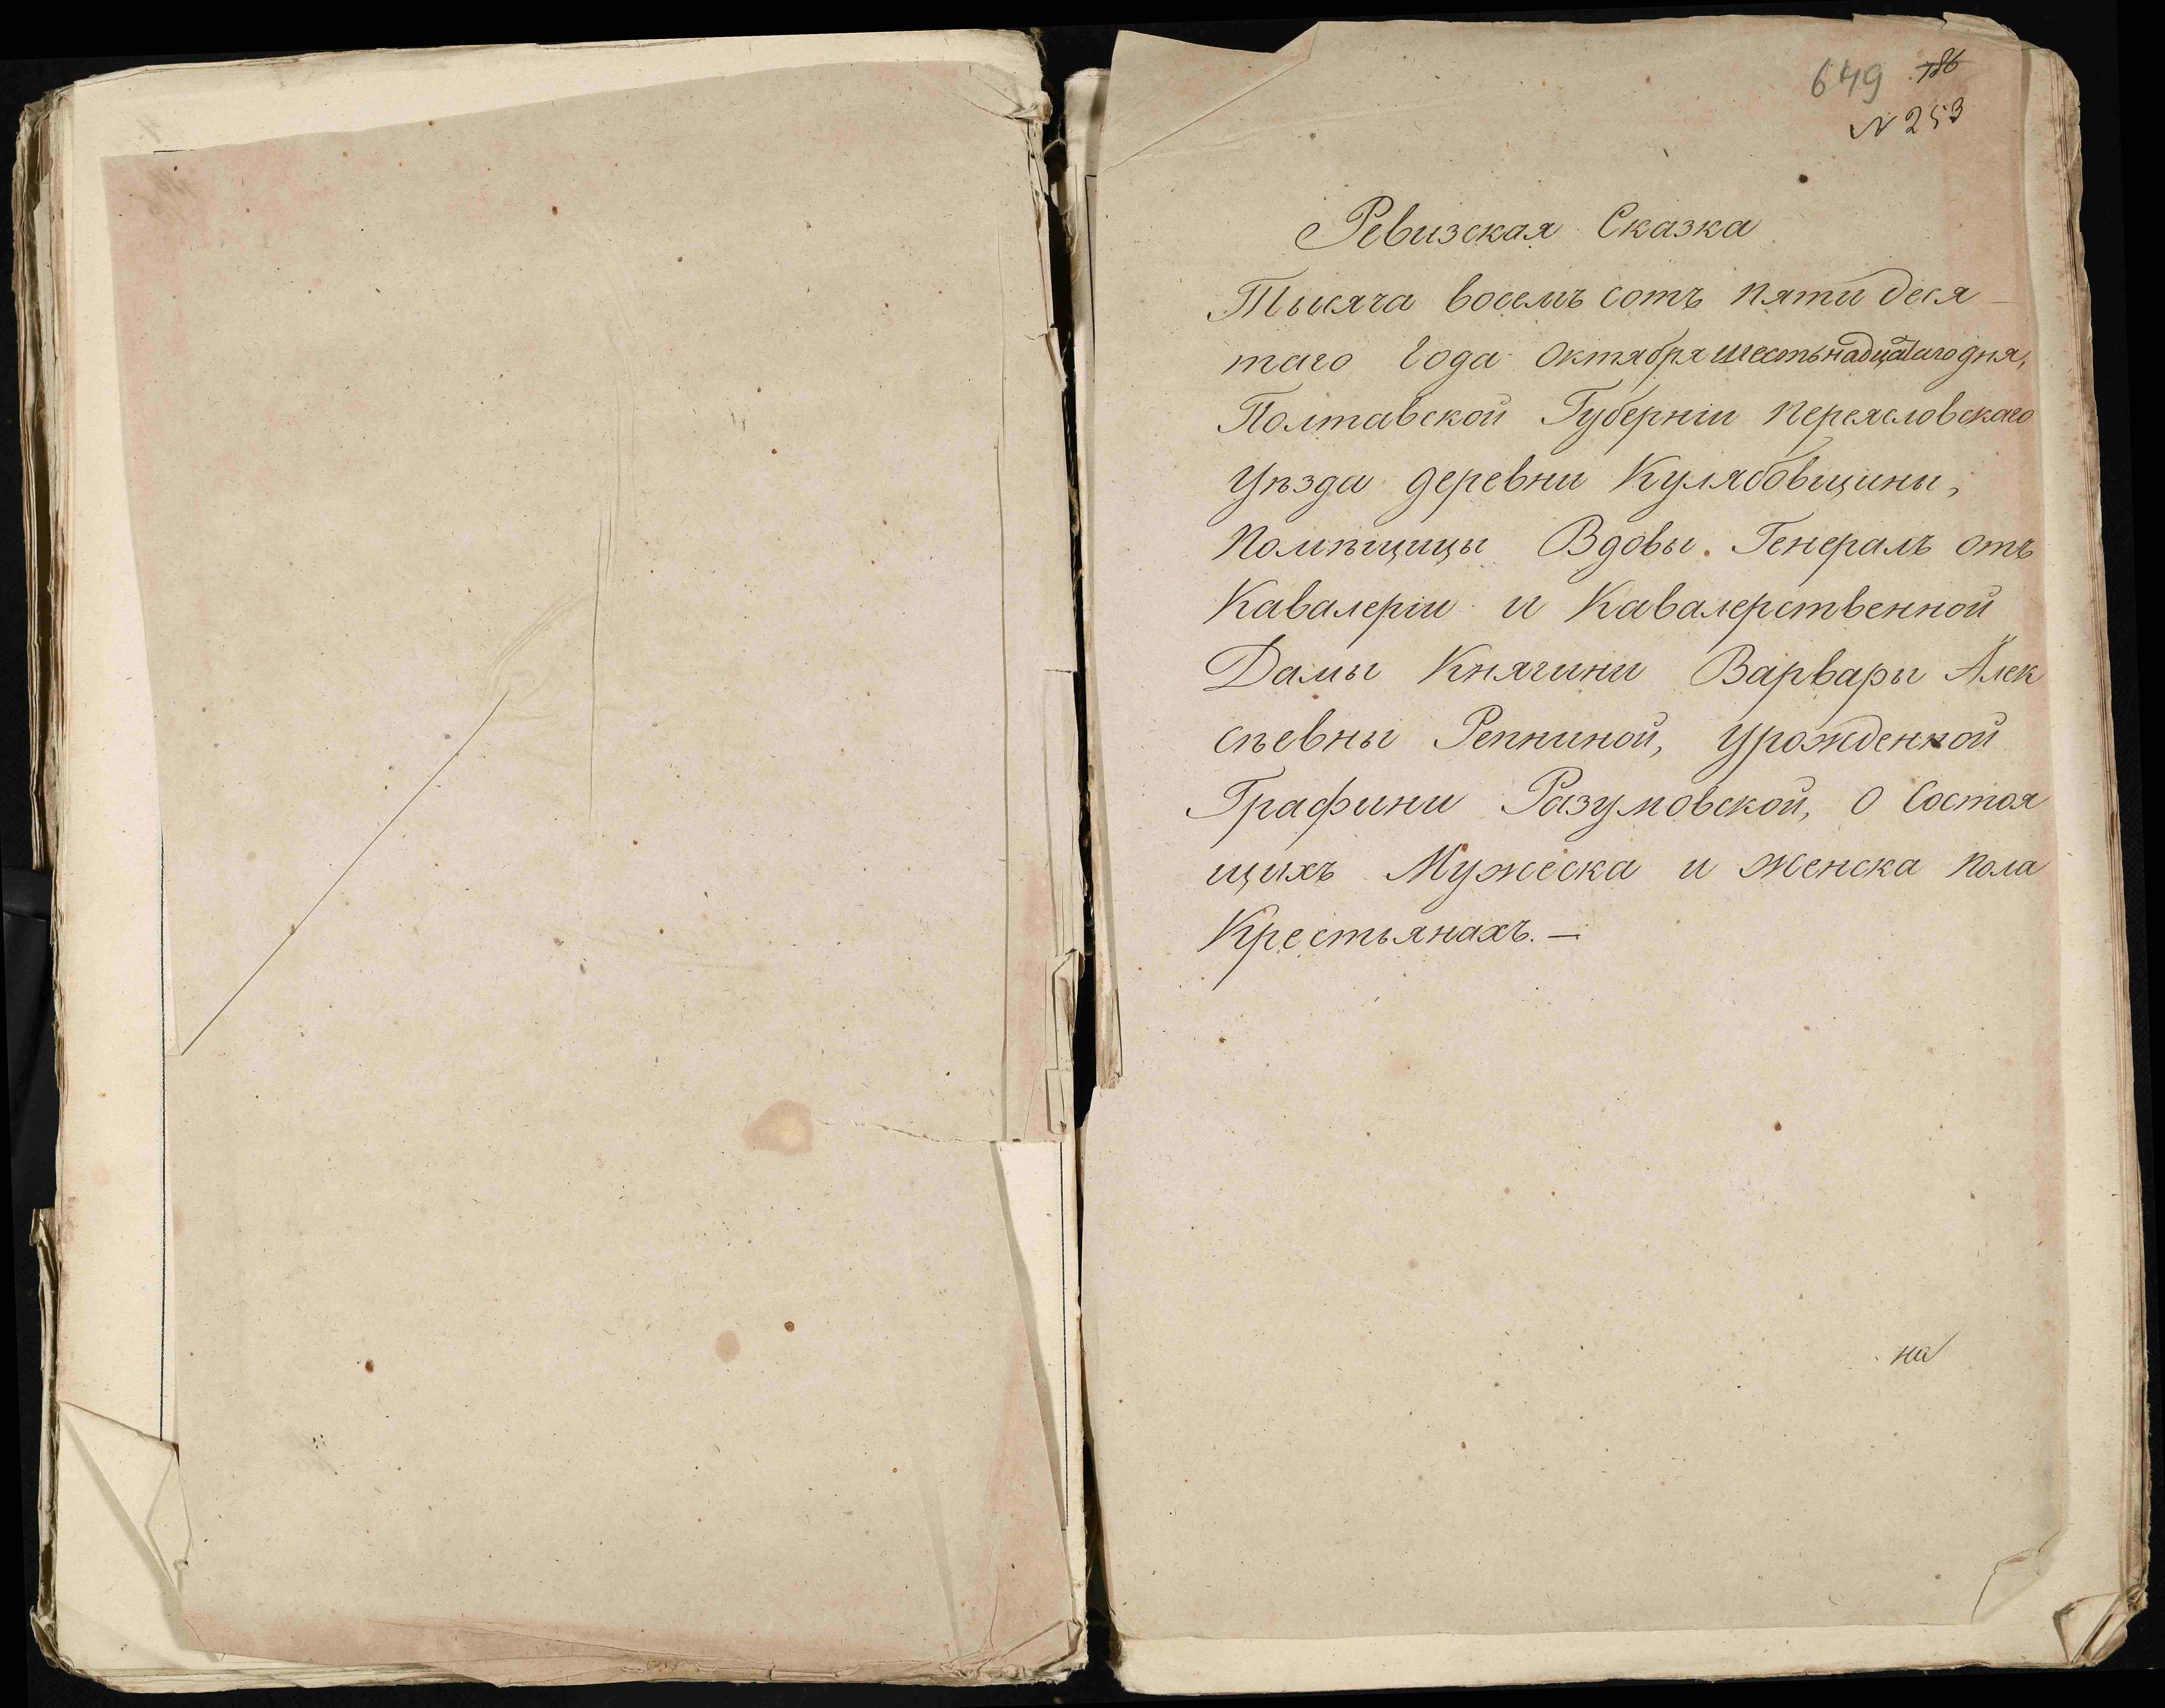 649 186
N 253
Ревизская Сказка
Тысяча восемь сотъ пяти деся–
таго Года Октября шестьнадцатаго дня,
Полтавской Губерніи Переясловскаго
Уѣзда деревни Кулябовщины,
Помѣщицы Вдовы Генералъ отъ
Кавалеріи и Кавалерственной
Дамы Княгини Варвары Алек
сѣевны Репниной, Урожденной
Графини Разумовской, О Состоя
щихъ Мужеска и Женска пола
Крестьянахъ.—
на